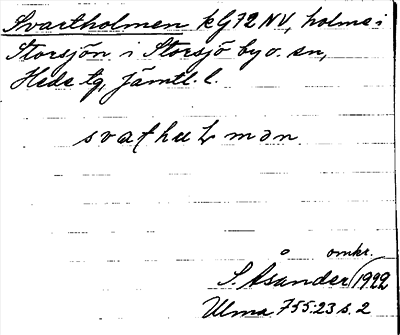 Svartholmen kG72NV, holme i
Storsjön i Storsjö by o. sn,
Heds tg, Jämtl. l.
omkr.
S. Åsander 1922
Ulma 755:23 s. 2